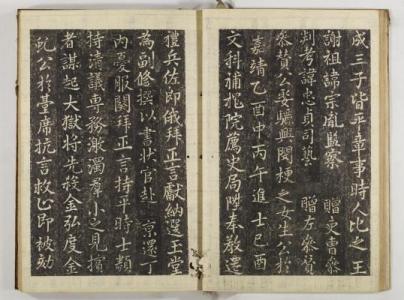 成三子皆平章事時人比之王
謝祖諱宗胤監察 贈吏曹參
判考諱忠貞司藝 贈左參贊
參贊公娶驪興閔梗之女生公於
嘉靖乙酉中丙午進士己酉
文科補槐院薦史局陞奉教遷
禮兵佐郎俄拜正言獻納選玉堂
為副修撰以書狀官赴 京還丁
內憂服闋拜正言持平時士類
持清議專務激濁羣小之見擯
者謀起大獄將先殺金弘度金
虬公於臺席抗言救正即被劾